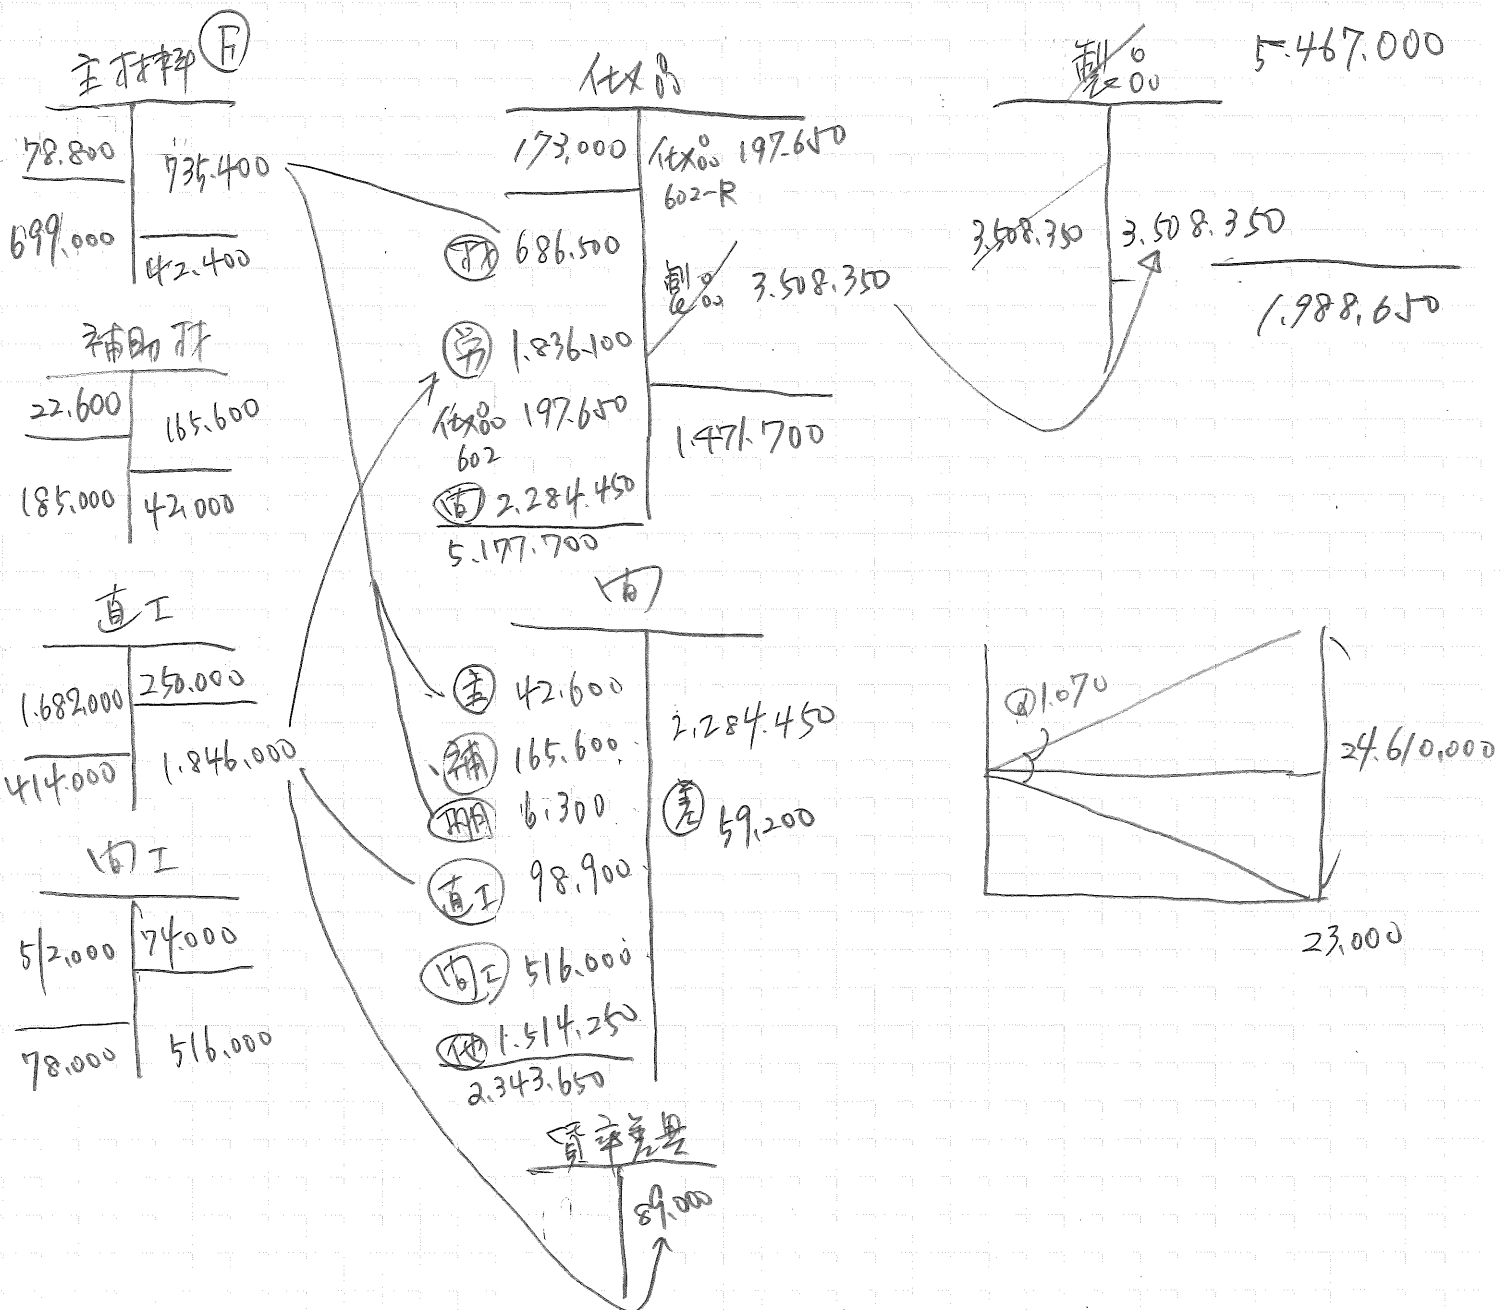 主材料 F
78.800
735.400
699.000
42.400
補助材
22.600
165.600
185.000
42.000
直工
1.682.000
250.000
414.000
1.846.000
間工
512.000
74.000
78.000
516.000
仕×品
173.000
仕×品 197.650
602-R
材 686.500
製品 3.508.350
労 1.836.100
仕×品 197.650
602
間 2.284.450
5.177.700
1.471.700
間
主 42.600
2.284.450
補 165.600
6.300
差 59.200
直工 98.900
間工 516.000
他 1.514.250
2.343.650
賃率差異
89.000
製品
5.467.000
3.508.350
3.508.350
1.988.650
@1.070
24.610.000
23.000